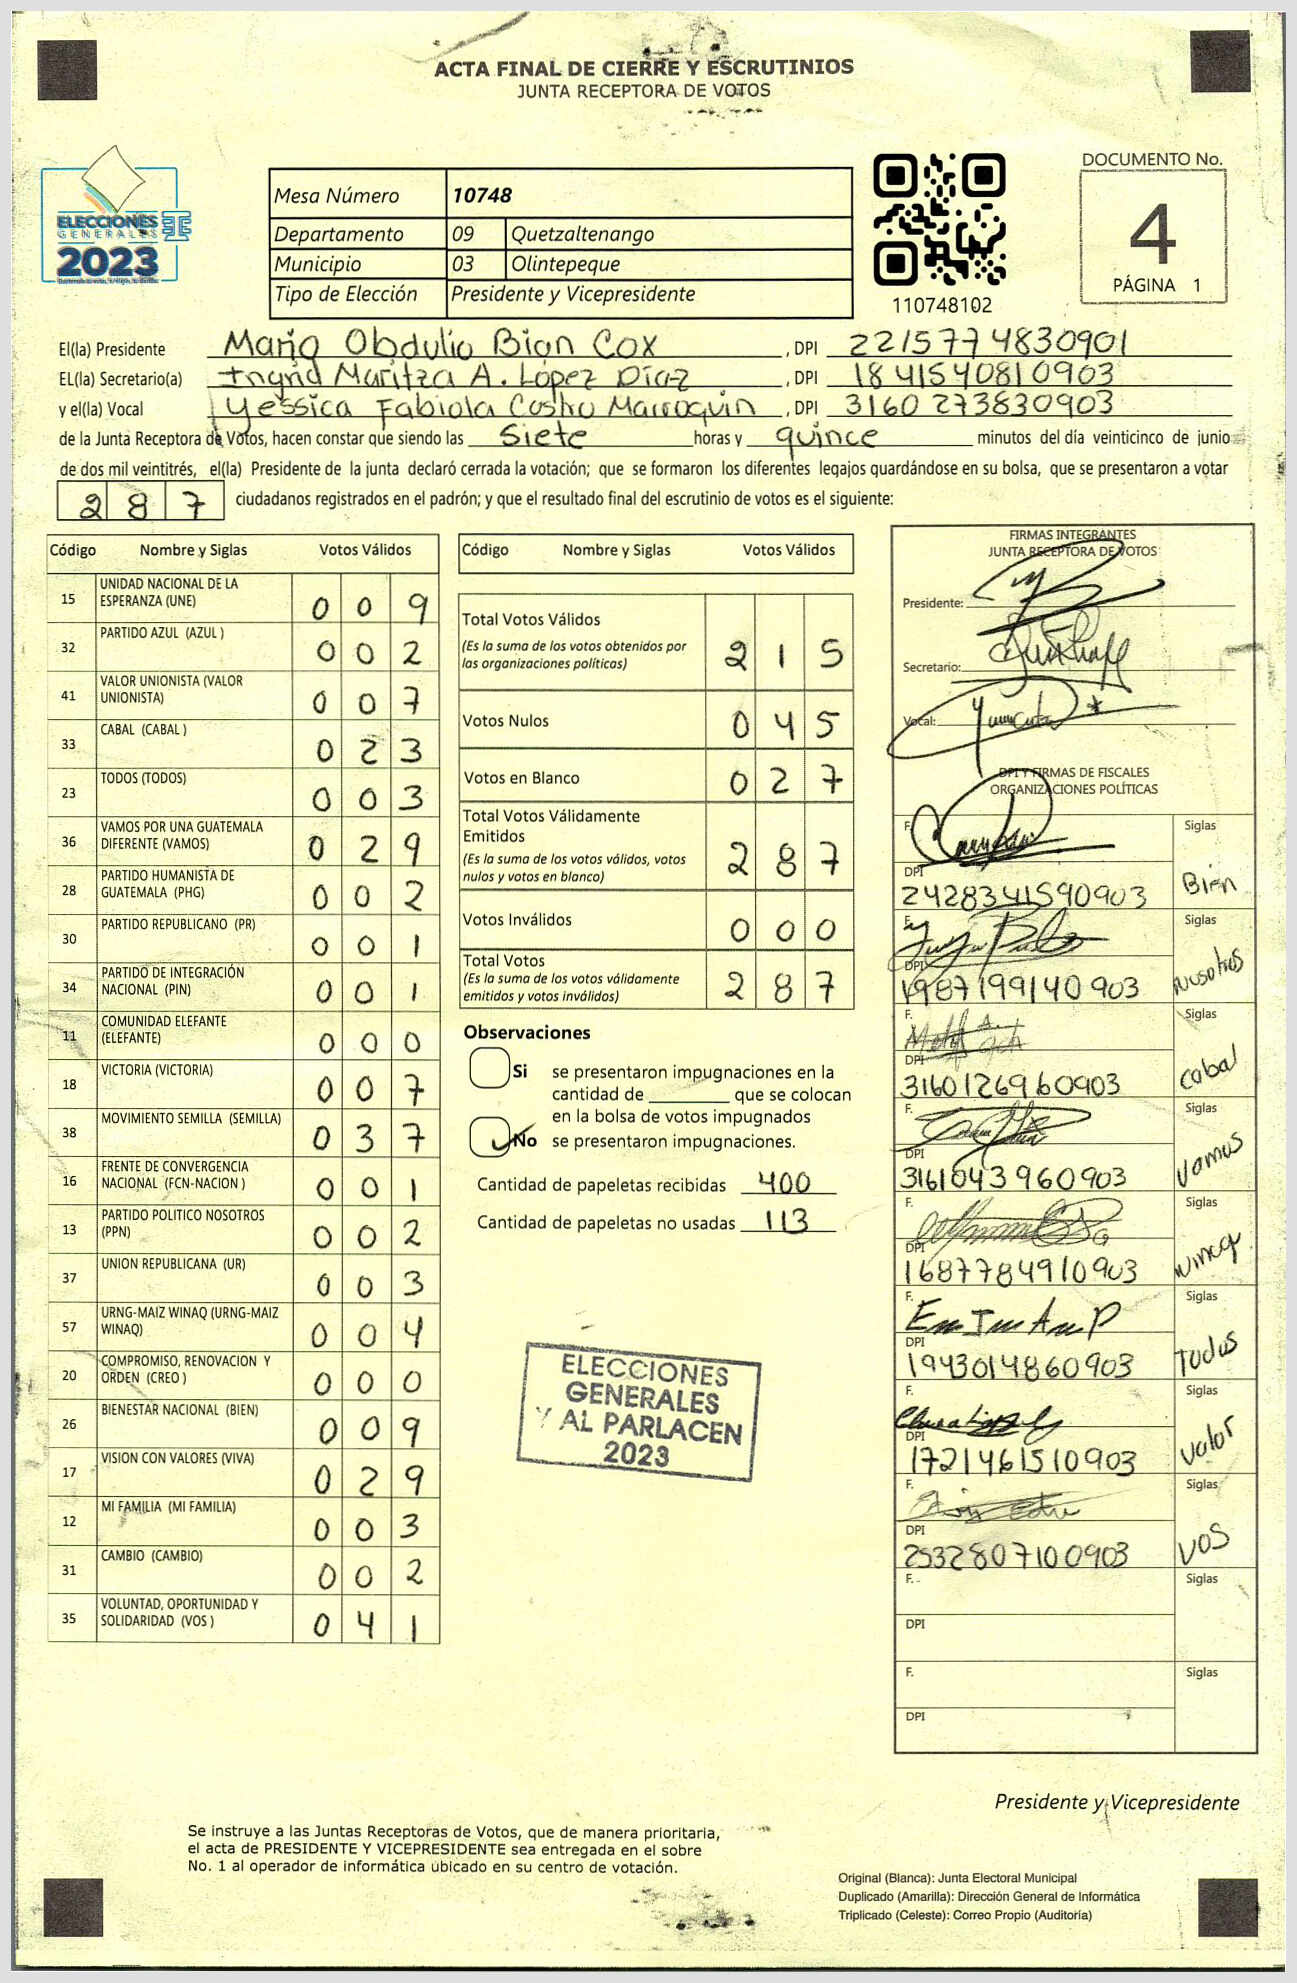 ACTA FINAL DE CIERRE Y ESCRUTINIOS
JUNTA RECEPTORA DE VOTOS
ELECCIONES
GENERALES
2023
Mesa Número 10748
Departamento 09 Quetzaltenango
Municipio 03 Olintepeque
Tipo de Elección Presidente y Vicepresidente
110748102
DOCUMENTO No.
4
PÁGINA 1
El(la) Presidente Mario Obdulio Bian Cox , DPI 2215774830901
EL(la) Secretario(a) Ingrid Maritza A. López Díaz , DPI 1841540810903
y el(la) Vocal Yessica Fabiola Castro Marroquin , DPI 3160273830903
de la Junta Receptora de Votos, hacen constar que siendo las siete horas y quince minutos del día veinticinco de junio
de dos mil veintitrés, el(la) Presidente de la junta declaró cerrada la votación; que se formaron los diferentes legajos guardándose en su bolsa, que se presentaron a votar
287 ciudadanos registrados en el padrón; y que el resultado final del escrutinio de votos es el siguiente:
Código Nombre y Siglas Votos Válidos
15 UNIDAD NACIONAL DE LA ESPERANZA (UNE) 0 0 9
32 PARTIDO AZUL (AZUL ) 0 0 2
41 VALOR UNIONISTA (VALOR UNIONISTA) 0 0 7
33 CABAL (CABAL ) 0 2 3
23 TODOS (TODOS) 0 0 3
36 VAMOS POR UNA GUATEMALA DIFERENTE (VAMOS) 0 2 9
28 PARTIDO HUMANISTA DE GUATEMALA (PHG) 0 0 2
30 PARTIDO REPUBLICANO (PR) 0 0 1
34 PARTIDO DE INTEGRACIÓN NACIONAL (PIN) 0 0 1
11 COMUNIDAD ELEFANTE (ELEFANTE) 0 0 0
18 VICTORIA (VICTORIA) 0 0 7
38 MOVIMIENTO SEMILLA (SEMILLA) 0 3 7
16 FRENTE DE CONVERGENCIA NACIONAL (FCN-NACION ) 0 0 1
13 PARTIDO POLITICO NOSOTROS (PPN) 0 0 2
37 UNION REPUBLICANA (UR) 0 0 3
57 URNG-MAIZ WINAQ (URNG-MAIZ WINAQ) 0 0 4
20 COMPROMISO, RENOVACION Y ORDEN (CREO ) 0 0 0
26 BIENESTAR NACIONAL (BIEN) 0 0 9
17 VISION CON VALORES (VIVA) 0 2 9
12 MI FAMILIA (MI FAMILIA) 0 0 3
31 CAMBIO (CAMBIO) 0 0 2
35 VOLUNTAD, OPORTUNIDAD Y SOLIDARIDAD (VOS ) 0 4 1
Código Nombre y Siglas Votos Válidos
Total Votos Válidos 2 1 5
(Es la suma de los votos obtenidos por
las organizaciones políticas)
Votos Nulos 0 4 5
Votos en Blanco 0 2 7
Total Votos Válidamente
Emitidos 2 8 7
(Es la suma de los votos válidos, votos
nulos y votos en blanco)
Votos Inválidos 0 0 0
Total Votos 2 8 7
(Es la suma de los votos válidamente
emitidos y votos inválidos)
Observaciones
Si se presentaron impugnaciones en la
cantidad de ________ que se colocan
en la bolsa de votos impugnados
No se presentaron impugnaciones.
Cantidad de papeletas recibidas 400
Cantidad de papeletas no usadas 113
ELECCIONES
GENERALES
Y AL PARLACEN
2023
FIRMAS INTEGRANTES
JUNTA RECEPTORA DE VOTOS
Presidente:
Secretario:
Vocal:
DPI Y FIRMAS DE FISCALES
ORGANIZACIONES POLÍTICAS
F. Siglas
DPI 2428341590903 Bien
F. Siglas
DPI 1987199140903 Nosotros
F. Siglas
DPI 3160126960903 cabal
F. Siglas
DPI 3161043960903 vamos
F. Siglas
DPI 1687784910903 winaq
F. Siglas
DPI 1943014860903 Todos
F. Siglas
DPI 1721461510903 valor
F. Siglas
DPI 2532807100903 VOS
F. Siglas
DPI
F. Siglas
DPI
Presidente y Vicepresidente
Se instruye a las Juntas Receptoras de Votos, que de manera prioritaria,
el acta de PRESIDENTE Y VICEPRESIDENTE sea entregada en el sobre
No. 1 al operador de informática ubicado en su centro de votación.
Original (Blanca): Junta Electoral Municipal
Duplicado (Amarilla): Dirección General de Informática
Triplicado (Celeste): Correo Propio (Auditoría)